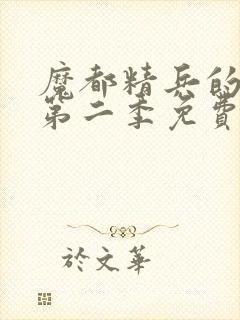 魔都精兵的
第二季免費
於文華